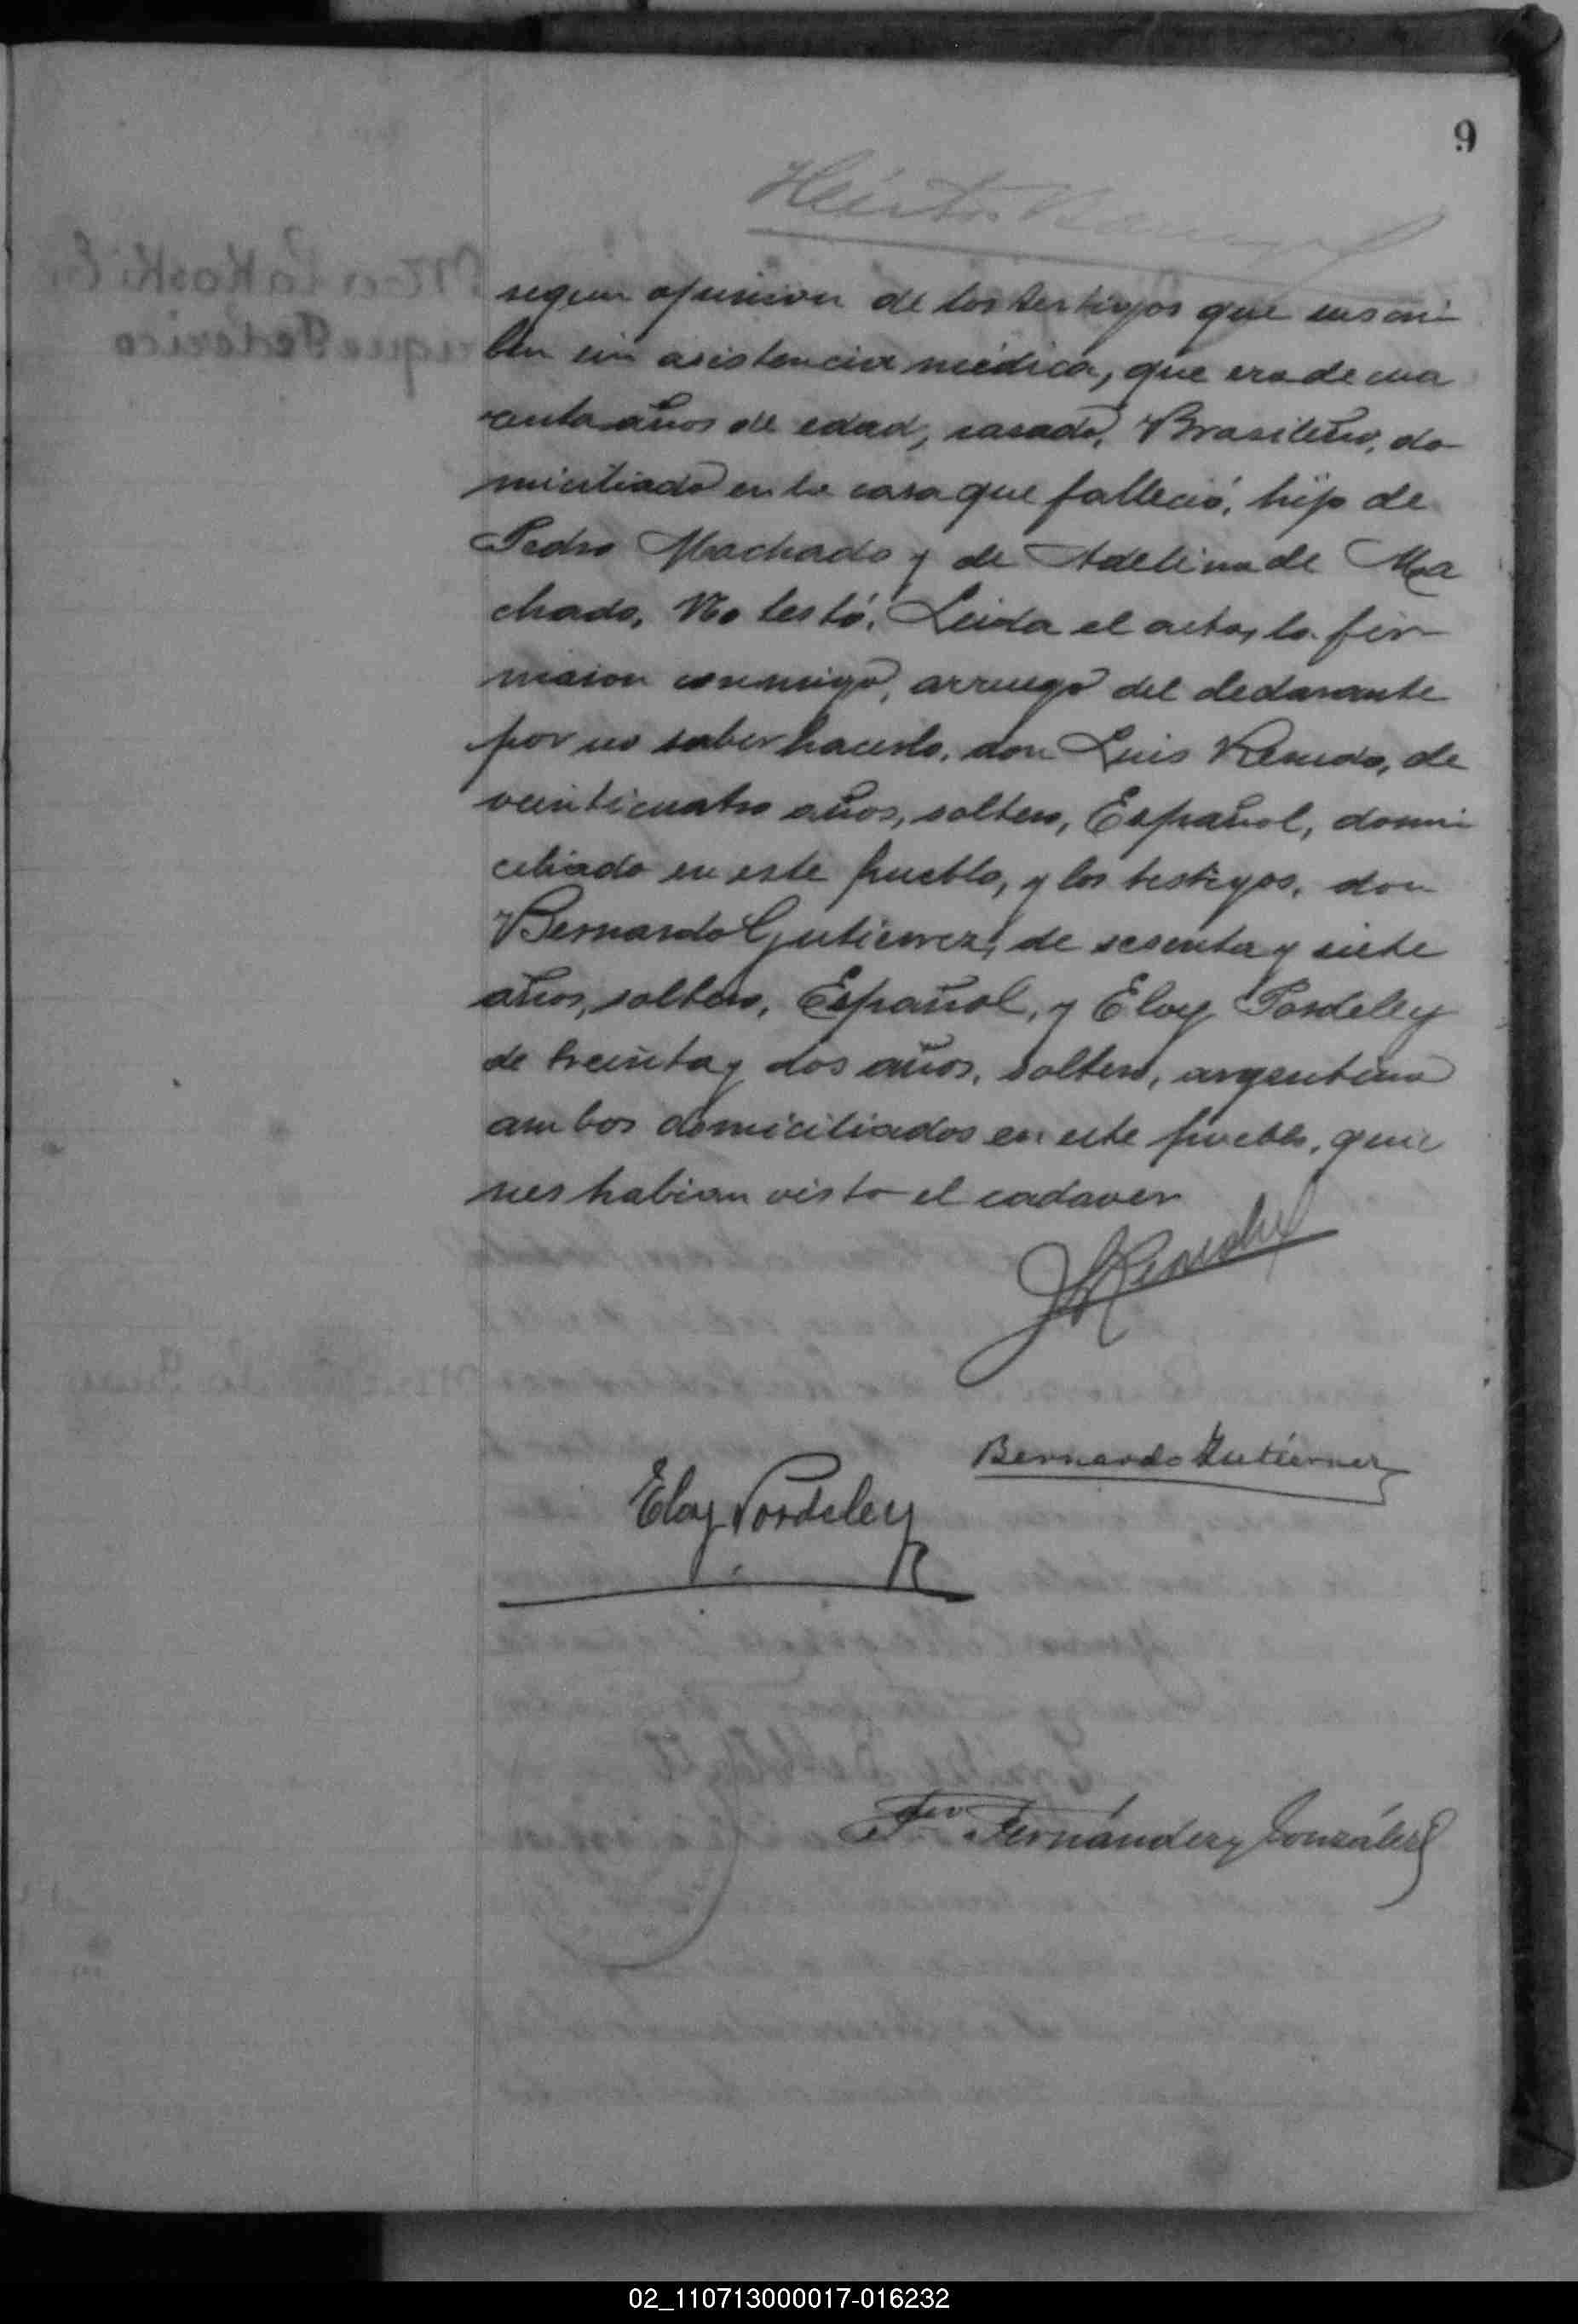 9
segun opinion de los testigos que suscri-
ben sin asistencia médica, que era de cua
renta años de edad, casado, Brasilero, do-
miciliado en la casa que falleció, hijo de
Pedro Machado y de Adelina de Ma
chado. No testó. Leida el acta, la fir-
maron conmigo, arruego del declarante
por no saber hacerlo, don Luis
de
veinticuatro años, soltero, Español, domi-
ciliado en este pueblo, y los testigos, don
Bernardo Gutierrez, de sesenta y siete
años, soltero, Español, y Eloy Pordeley
de treinta y dos años, soltero, argentino
ambos domiciliados en este pueblo, quie
nes habian visto el cadaver
Bernardo Gutierrez
Eloy Pordeley
Fernández González
02_110713000017-016232